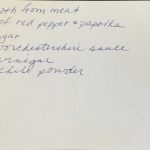 oth from meat
of red pepper + paprika
gar
orchestershire sauce
inegar
chili powder